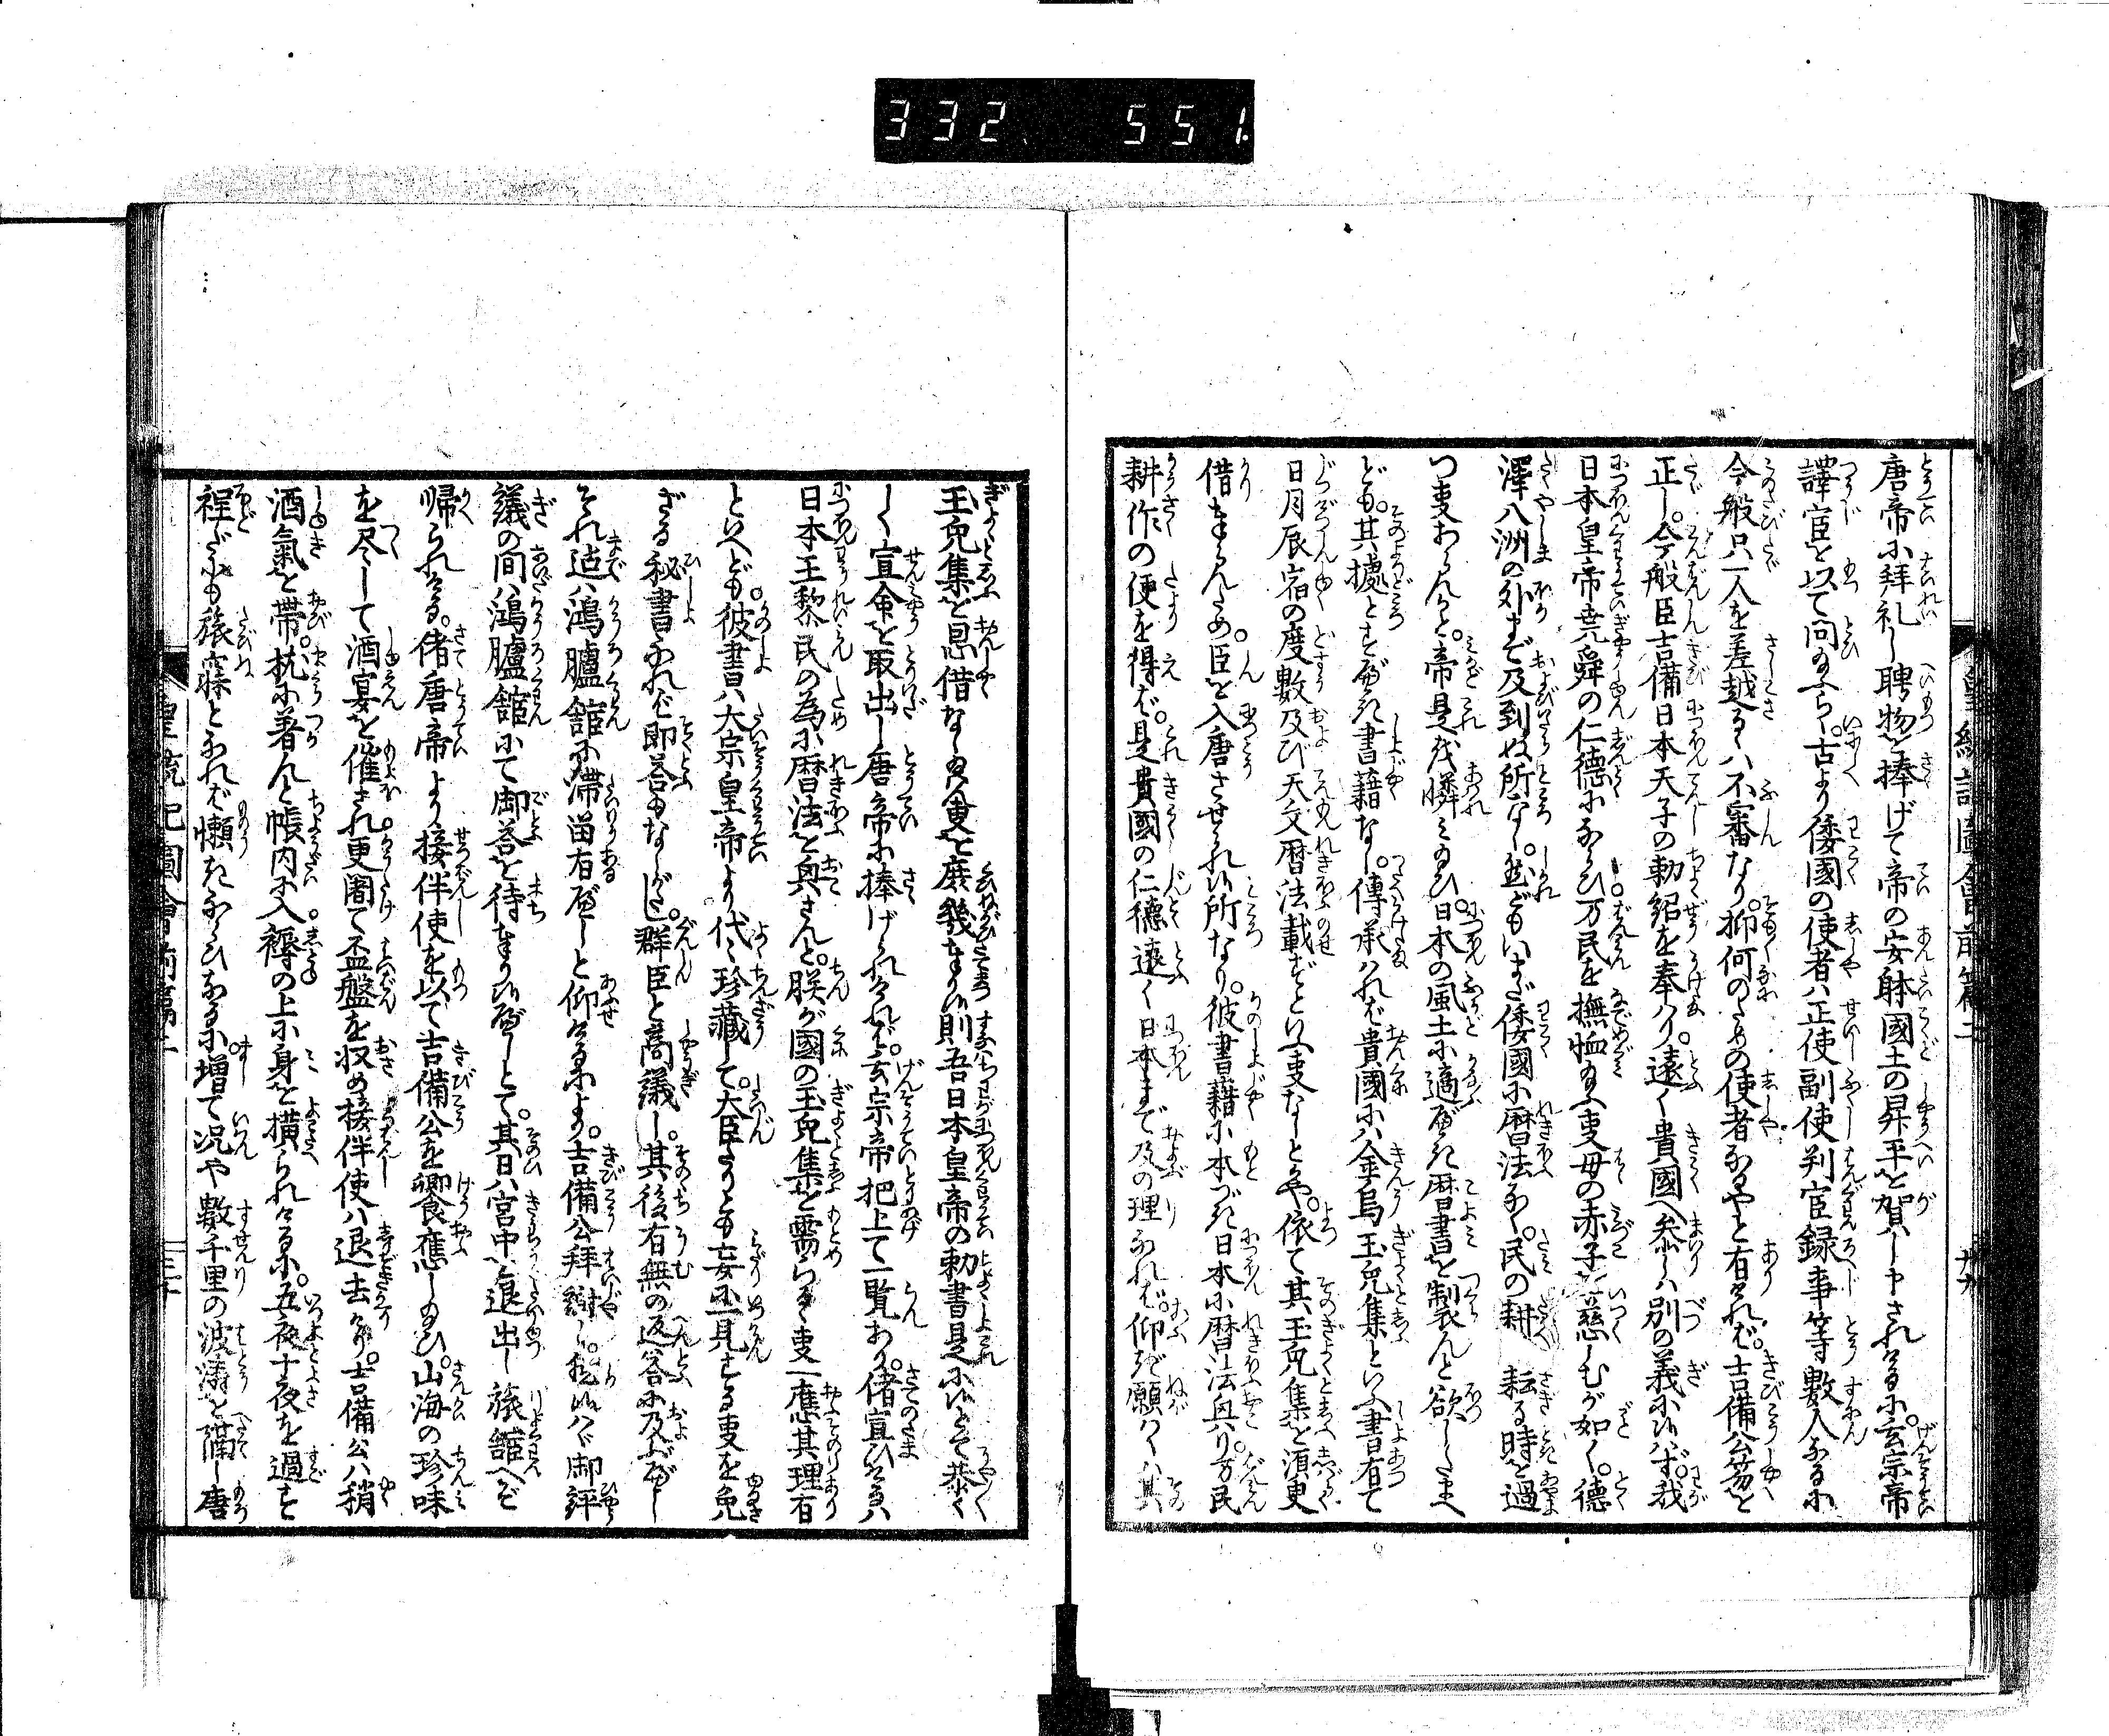 332 551
唐帝に拝礼し聘物を捧げて帝の安躰國土の昇平を賀し申されけるに。玄宗帝
譯官を以て問給ふらく。古より倭國の使者ハ正使副使判官録事等数人なるに
今般只一人を差越るハ不審なり。抑何のための使者なるやと有けれバ。吉備公笏を
正し。今般臣吉備日本天子の勅紹を奉ハり。遠く貴國へ参りしハ別の義に候ハず。我
日本皇帝尭舜の仁徳にならひ万民を撫恤給ふ事母の赤子を慈しむが如く。徳
澤八洲の外まで及到ぬ所なし。然どもいまだ倭國に暦法なく。民の耕耘る時を過
つ事おほしと。帝是を憐ミ給ひ。日本の風土に適べき暦書を製んと欲したまへ
ども。其據とすべき書藉なし。傳承ハれバ貴國にハ金烏玉兎集といふ書有て
日月辰宿の度數及び天文暦法載ずといふ事なしとかや。依て其玉兎集を湏臾
借まゐらんため。臣を入唐させられ候所なり。彼書藉に本づき日本に暦法興り万民
耕作の便を得バ。是貴國の仁徳遠く日本まで及の理なれバ。仰ぎ願ハくハ其
玉兎集を恩借なし給ハん事を庶幾奉り候則吾日本皇帝の勅書是に候とて恭く
しく宣命を取出し唐帝に捧げられけれバ。玄宗帝把上て一覧あり。偖宣ひけるハ
日本王黎民の為に暦法を興さんと。朕が國の玉兎集を需らるゝ事一應其理有
といへども。彼書ハ大宗皇帝より代々珍藏して。大臣たりとも妄に一見する事を免
ざる秘書なれバ即答もなしがたし。群臣と商議し。其後有無の返答に及ぶべし
それ迠ハ鴻臚舘に滞畄有べしと仰けるにより。吉備公拝謝し。然候ハゞ御評
議の間ハ鴻臚舘にて御答を待奉り候べしとて。其日ハ宮中を退出し旅舘へぞ
帰られける。偖唐帝より接伴使を以て吉備公を饗應し給ひ。山海の珍味
を尽して酒宴を催され更闌て盃盤を収め接伴使ハ退去けり。吉備公ハ稍
酒氣を帯。枕に著んと帳内に入褥の上に身を横られけるに。五夜十夜を過す
程だにも旅寐となれバ懶きならひなるに。増て况や數千里の波濤を隔し唐